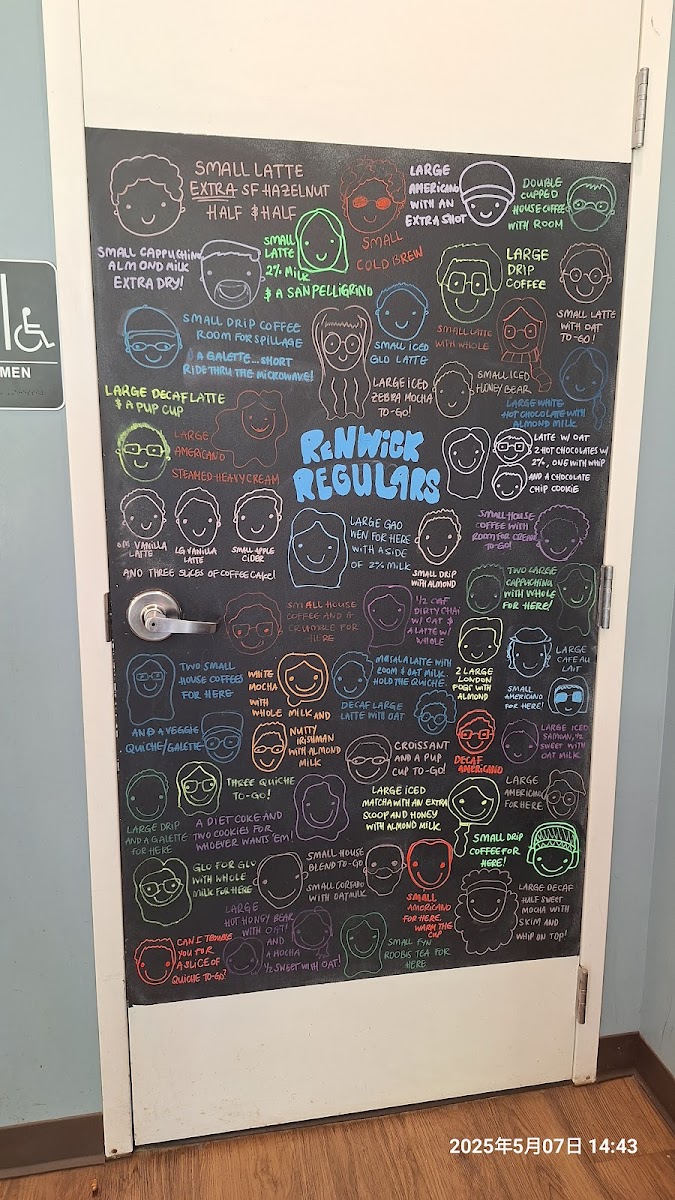 SMALL LATTE
EXTRA SF HAZELNUT
HALF & HALF
SMALL
COLD BREW
LARGE
AMERICANO
WITH AN
EXTRA SHOT
DOUBLE
CUPPED
HOUSE COFFEE
WITH ROOM
SMALL CAPPUCHINO
ALMOND MILK
EXTRA DRY!
SMALL
LATTE
2% MILK
& A SAN PELLIGRINO
LARGE
DRIP
COFFEE
SMALL LATTE
WITH OAT
TO-GO!
SMALL DRIP COFFEE
ROOM FOR SPILLAGE
A GALETTE...SHORT
RIDE THRU THE MICROWAVE!
SMALL ICED
GLO LATTE
SMALL LATTE
WITH WHOLE
LARGE ICED
ZEBRA MOCHA
TO-GO!
SMALL ICED
HONEY BEAR
LARGE WHITE
HOT CHOCOLATE WITH
ALMOND MILK
LARGE DECAF LATTE
& A PUP CUP
LARGE
AMERICANO
STEAMED HEAVY CREAM
RENWICK
REGULARS
LATTE W/ OAT
2 HOT CHOCOLATES W/
2%, ONE WITH WHIP
AND A CHOCOLATE
CHIP COOKIE
MEN
VANILLA
LATTE
LG VANILLA
LATTE
SMALL APPLE
CIDER
AND THREE SLICES OF COFFEE CAKE!
LARGE GAO
WEN FOR HERE
WITH A SIDE
OF 2% MILK
SMALL DRIP
WITH ALMOND
SMALL HOUSE
COFFEE WITH
ROOM FOR CREAM
TO-GO!
TWO LARGE
CAPPUCHINO
WITH WHOLE
FOR HERE!
SMALL HOUSE
COFFEE AND A
CRUMBLE FOR
HERE
1/2 CAF
DIRTY CHAI
W/ OAT &
A LATTE W/
WHOLE
2 LARGE
LONDON
FOGS WITH
ALMOND
SMALL
AMERICANO
FOR HERE!
LARGE
CAFE AU
LAIT
TWO SMALL
HOUSE COFFEES
FOR HERE
AND A VEGGIE
QUICHE/GALETTE
WHITE
MOCHA
WITH
WHOLE MILK AND
NUTTY
IRISHMAN
WITH ALMOND
MILK
MASALA LATTE WITH
ROOM & OAT MILK
HOLD THE QUICHE
DECAF LARGE
LATTE WITH OAT
CROISSANT
AND A PUP
CUP TO-GO!
DECAF
AMERICANO
LARGE ICED
SAMOAN, 1/2
SWEET WITH
OAT MILK
LARGE DRIP
AND A GALETTE
FOR HERE
THREE QUICHE
TO-GO!
A DIET COKE AND
TWO COOKIES FOR
WHOEVER WANTS 'EM!
LARGE ICED
MATCHA WITH AN EXTRA
SCOOP AND HONEY
WITH ALMOND MILK
LARGE
AMERICANO
FOR HERE
SMALL DRIP
COFFEE FOR
HERE!
GLO FOR GLO
WITH WHOLE
MILK FOR HERE
SMALL HOUSE
BLEND TO-GO
SMALL CORTADO
WITH OATMILK
SMALL
AMERICANO
FOR HERE,
WARM THE
CUP
LARGE DECAF
HALF SWEET
MOCHA WITH
SKIM AND
WHIP ON TOP!
CAN I TROUBLE
YOU FOR
A SLICE OF
QUICHE TO-GO?
LARGE
HOT HONEY BEAR
WITH OAT!
AND
A MOCHA
1/2 SWEET WITH OAT!
SMALL
ROOBIS TEA FOR
HERE
2025年5月07日 14:43